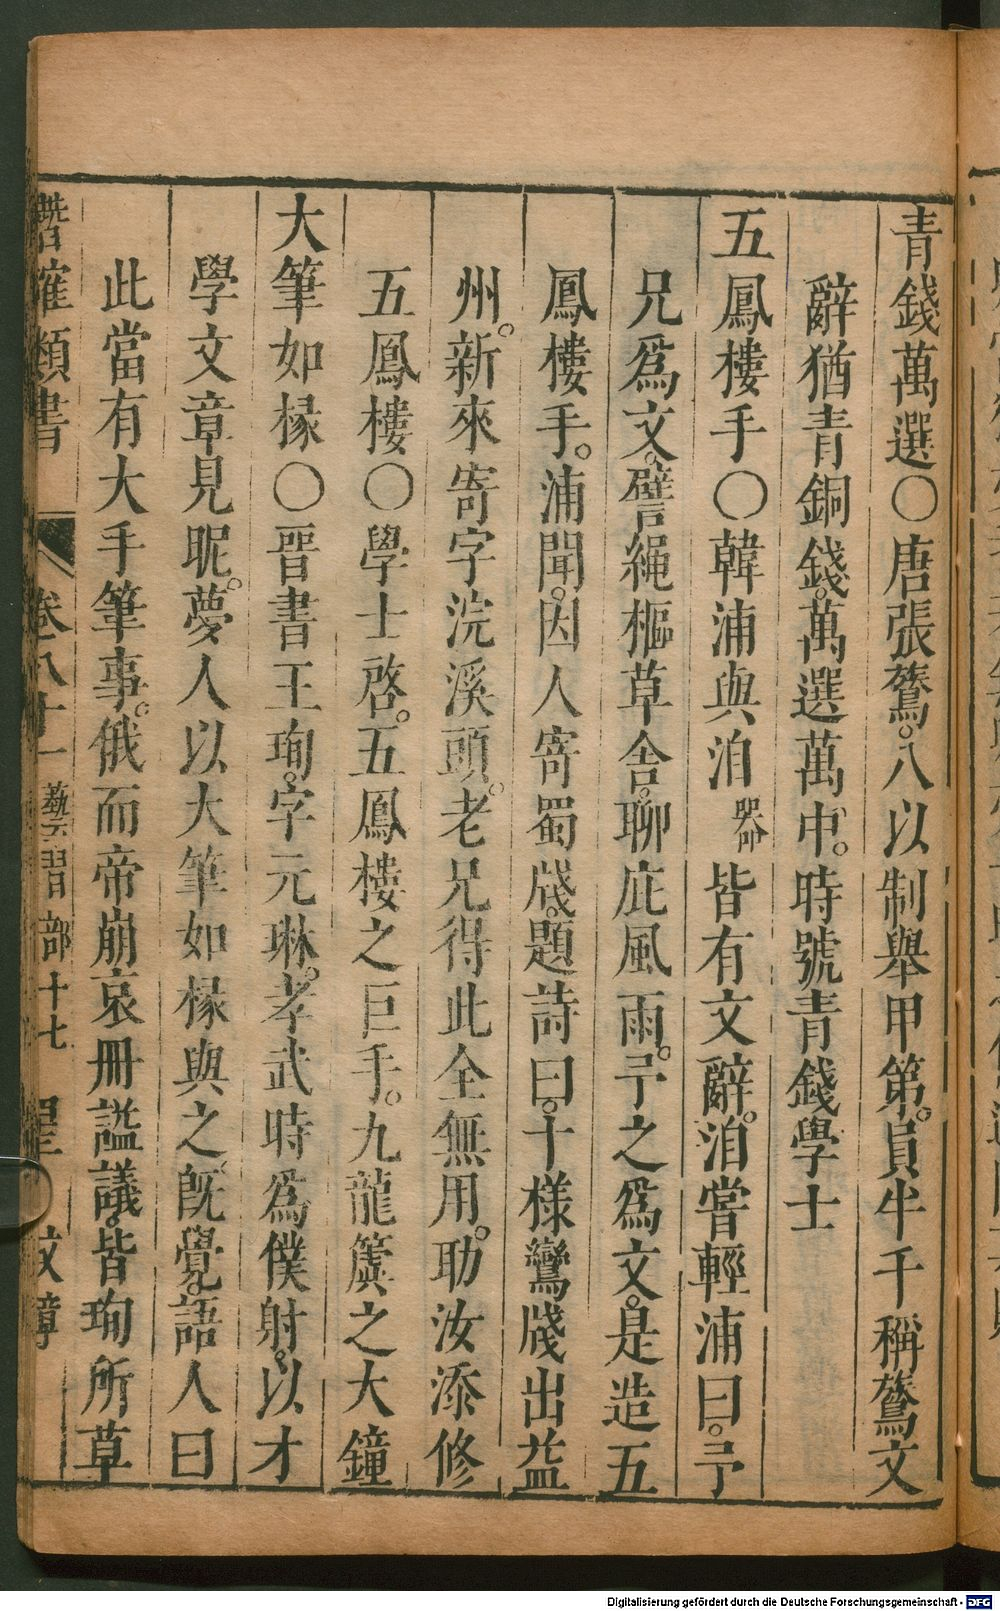 青錢萬選○唐張鷟。八以制舉甲第。員半千稱鷟文
辭猶青銅錢。萬選萬中。時號青錢學士
五鳳樓手○韓浦與洎皆有文辭。洎嘗輕浦曰。予
兄爲文。譬繩樞草舎。聊庇風雨。予之爲文。是造五
鳳樓手。浦聞。因人寄蜀牋。題詩曰。十様鸞牋出益
州。新來寄字浣溪頭。老兄得此全無用。助汝添修
五鳳樓○學士啓。五鳳樓之巨手。九龍簴之大鐘
大筆如椽○晋書王珣。字元琳。孝武時爲僕射。以才
學文章見昵。夢人以大筆如椽與之。旣覺。語人曰
此當有大手筆事。俄而帝崩哀冊謚議。皆珣所草
類書 卷八十一 藝習部十七 文章
Digitalisierung gefördert durch die Deutsche Forschungsgemeinschaft - DFG